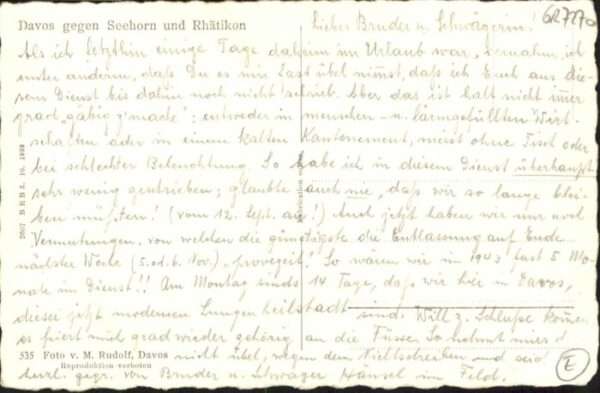 Davos gegen Seehorn und Rhätikon
Lieber Bruder u. Schwägerin!
Als ich letzthin einige Tage daheim im Urlaub war, vernahm ich
unter anderm, daß Du es mir fast übel nimmst, daß ich Euch aus die-
sem Dienst bis dahin noch nicht schrieb. Aber das ist halt nicht immer
grad „gäbig g'mache": entweder in menschen- u. lärmgefüllten Wirt-
schaften oder in einem kalten Kantonnement, meist ohne Tisch oder
bei schlechter Beleuchtung. So habe ich in diesem Dienst überhaupt
sehr wenig geschrieben; glaubte auch nie, daß wir so lange blei-
ben müßten! (vom 12. Sept. an!) Und jetzt haben wir nur
Vermutungen, von welchen die günstigste die Entlassung auf Ende
nächster Woche (5. od. 6. Nov.) So waren wir in 1943 fast 5 Mo-
nate im Dienst!! Am Montag sinds 14 Tage, daß wir hier in Davos,
dieser jetzt modernen Lungenheilstadt sind. Will z. Schluße kommen,
es friert mich grad wieder gehörig an die Füsse. So nehmt mirs
nicht übel, wegen dem Nichtschreiben und seid
herzl. gegr. von Bruder u. Schwager Hänsel im Feld.
535 Foto v. M. Rudolf, Davos
Reproduktion verboten
E